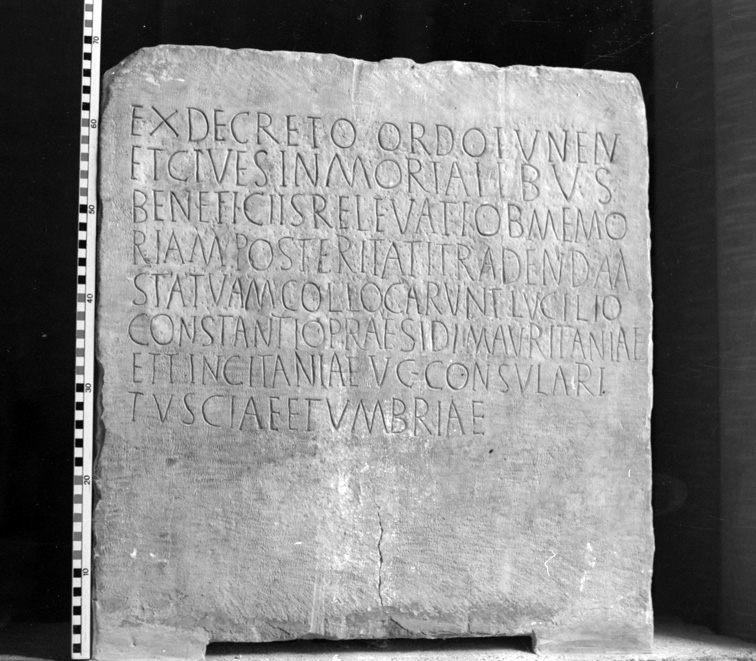 EXDECRETO ORDO LVNEN
ETCIVES INMORTALIBVS
BENEFICIIS RELEVATI OB MEMO
RIAM POSTERITATI TRADENDAM
STATVAM COLLOCARVNT LVCILIO
CONSTANTIO PRAESIDI MAVRITANIAE
ETTINCITANIAE VC CONSVLARI
TVSCIAE ET VMBRIAE
70
60
50
40
30
20
10